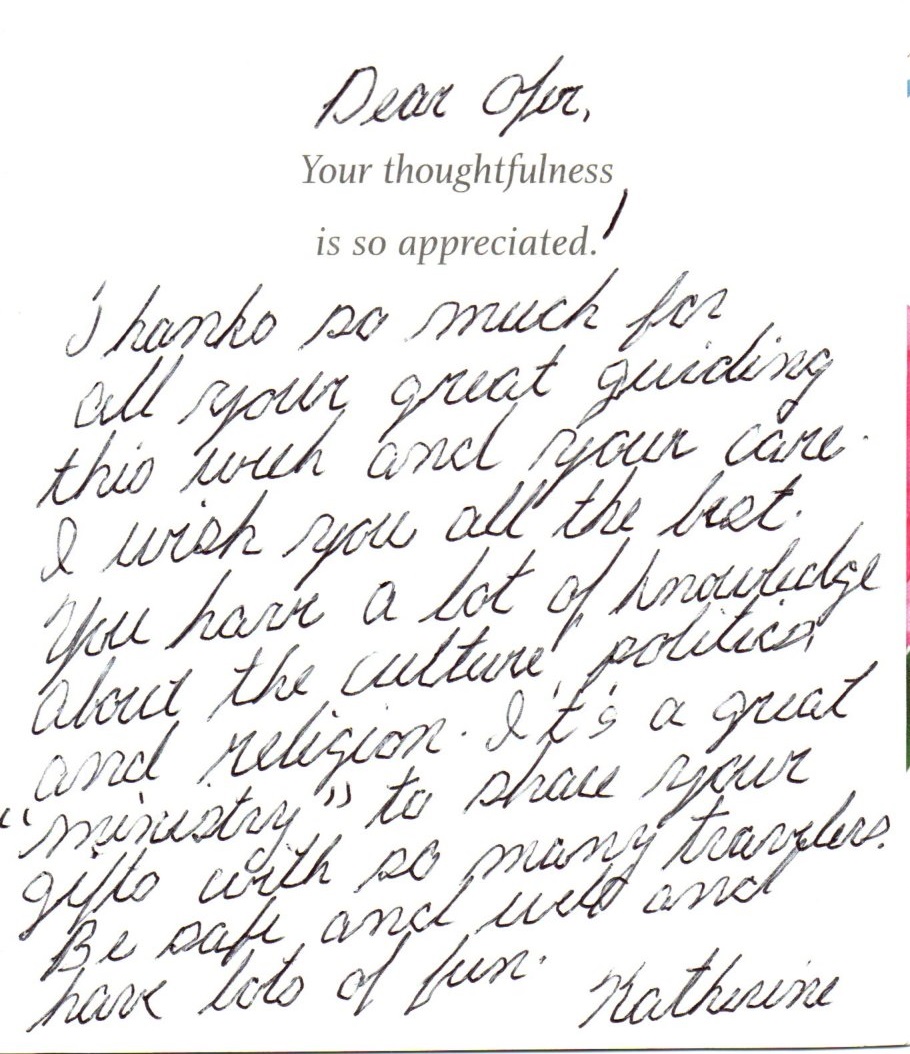 Dear Ofer,
Your thoughtfulness
is so appreciated.!
Thanks so much for
all your great guiding
this week and your care.
I wish you all the best.
You have a lot of knowledge
about the culture, politics,
and religion. It's a great
"ministry" to share your
gifts with so many travelers.
Be safe and well and
have lots of fun.
Katherine